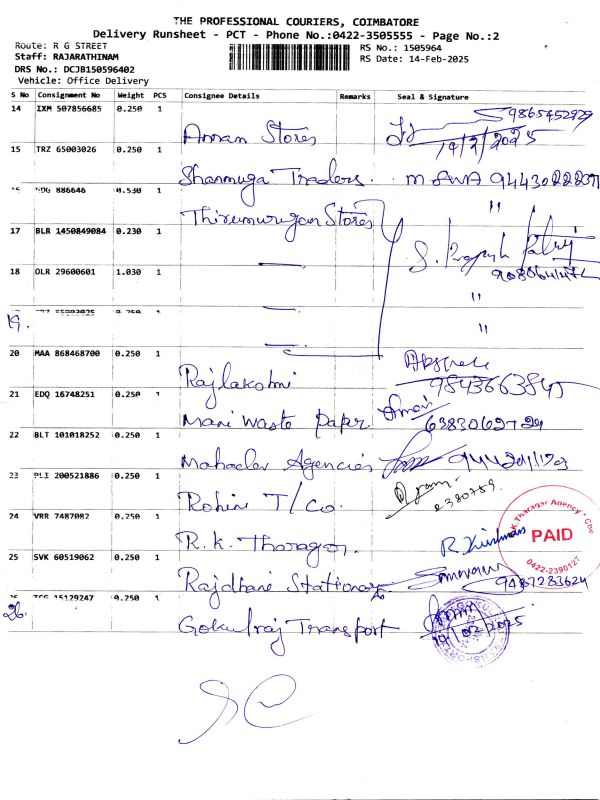 THE PROFESSIONAL COURIERS, COIMBATORE
Delivery Runsheet - PCT - Phone No.:0422-3505555 - Page No.:2
Route: R G STREET
RS No.: 1505964
Staff: RAJARATHINAM
RS Date: 14-Feb-2025
DRS No.: DCJB150596402
Vehicle: Office Delivery
S No Consignment No Weight PCS Consignee Details Remarks Seal & Signature
14 IXM 507856685 0.250 1
Aman Stores 19/2/2025
15 TRZ 65003026 0.250 1
Shanmuga Traders.
886646 0.530 1
Thirumurugan Stores "
17 BLR 1450849084 0.230 1
18 OLR 29600601 1.030 1
"
19. 1
"
20 MAA 868468700 0.250 1
Rajlakshmi 9843663845
21 EDQ 16748251 0.250 1
Mani waste paper
22 BLT 101018252 0.250 1
Mahadev Agencies
23 PLI 200521886 0.250 1
Rohini T/Co.
24 VRR 7487082 0.250 1
R.K. Tharagar. R. Krishnan
K.Tharagar Agency - Cbe
PAID
0422-2390127
25 SVK 60519062 0.250 1
Rajdhani Stationary 9487283624
26 15129247 0.250 1
Gokulraj Transport 19/02/2025